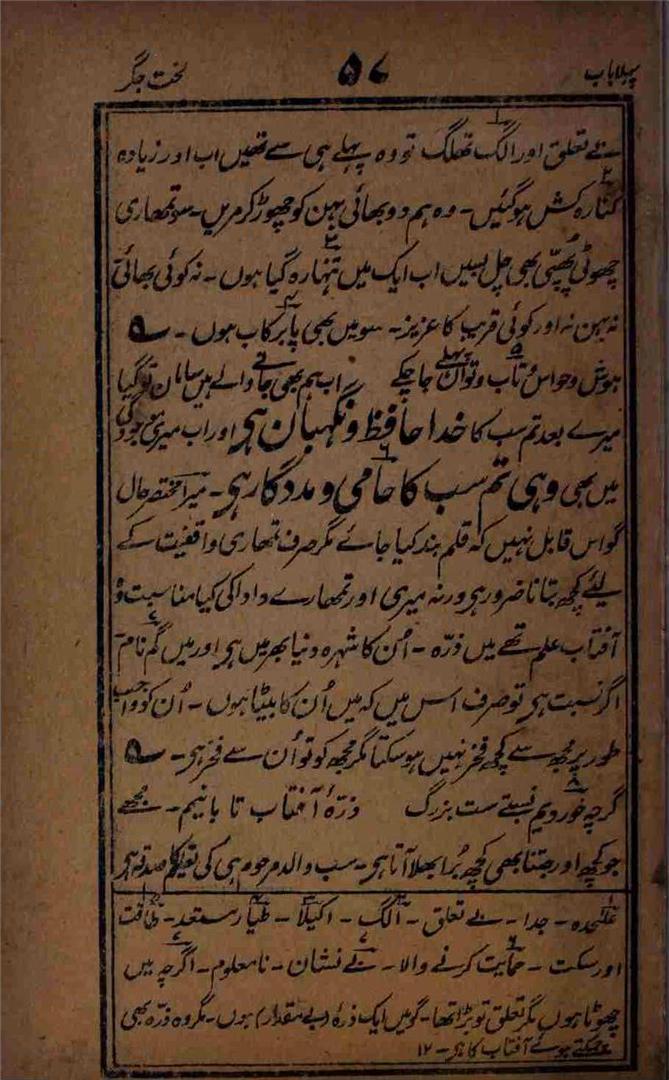 پہلا باب ۵۷ لخت جگر
بے تعلق اور الگ تھلگ تو وہ پہلے ہی سے تھیں اب اور زیادہ
کنارہ کش ہو گئیں۔ وہ ہم دو بھائی بہن کو چھوڑ کر مریں۔ سو تمھاری
چھوٹی پھپّی بھی چل بسیں اب ایک میں تنہا رہ گیا ہوں۔ نہ کوئی بھائی
نہ بہن نہ اور کوئی قریب کا عزیز۔ سو میں بھی پا بر کاب ہوں۔ ؎
ہوش و حواس و تاب و تواں پہلے جا چکے اب ہم بھی جانے والے ہیں سامان تو گیا
میرے بعد تم سب کا خدا حافظ و نگہبان ہی اور اب میری موجودگی
میں بھی وہی تم سب کا حامی و مددگار ہی۔ میرا مختصر حال
گو اس قابل نہیں کہ قلم بند کیا جائے مگر صرف تمھاری واقفیت کے
لئے کچھ بتانا ضرور ہی ورنہ میری اور تمھارے دادا کی کیا مناسبت وُہ
آفتاب علم تھے میں ذرّہ۔ اُن کا شہرہ دنیا بھر میں ہی اور میں گم نام
اگر نسبت ہی تو صرف اس میں کہ میں اُن کا بیٹا ہوں۔ اُن کو واجب
طور پر مجھ سے کچھ فخر نہیں ہو سکتا مگر مجھ کو تو اُن سے فخر ہی۔ ؎
گرچہ خوردیم نسبتے ست بزرگ ذرّۂ آفتاب تا بانیم۔ مجھے
جو کچھ اور جتنا بھی کچھ بُرا بھلا آتا ہی۔ سب والد مرحوم ہی کی تعلیم کا صدقہ ہی
علٰحدہ۔ جدا۔ بے تعلق۔ الگ۔ اکیلا۔ طیار مستعد۔ طاقت
اور سکت۔ حمایت کرنے والا۔ بے نشان۔ نا معلوم۔ اگرچہ میں
چھوٹا ہوں مگر تعلق تو بڑا تھا۔ گو میں ایک ذرّہ (بے مقدار) ہوں۔ مگر وہ ذرّہ بھی
چمکتے ہوئے آفتاب کا ہی۔ ۱۲